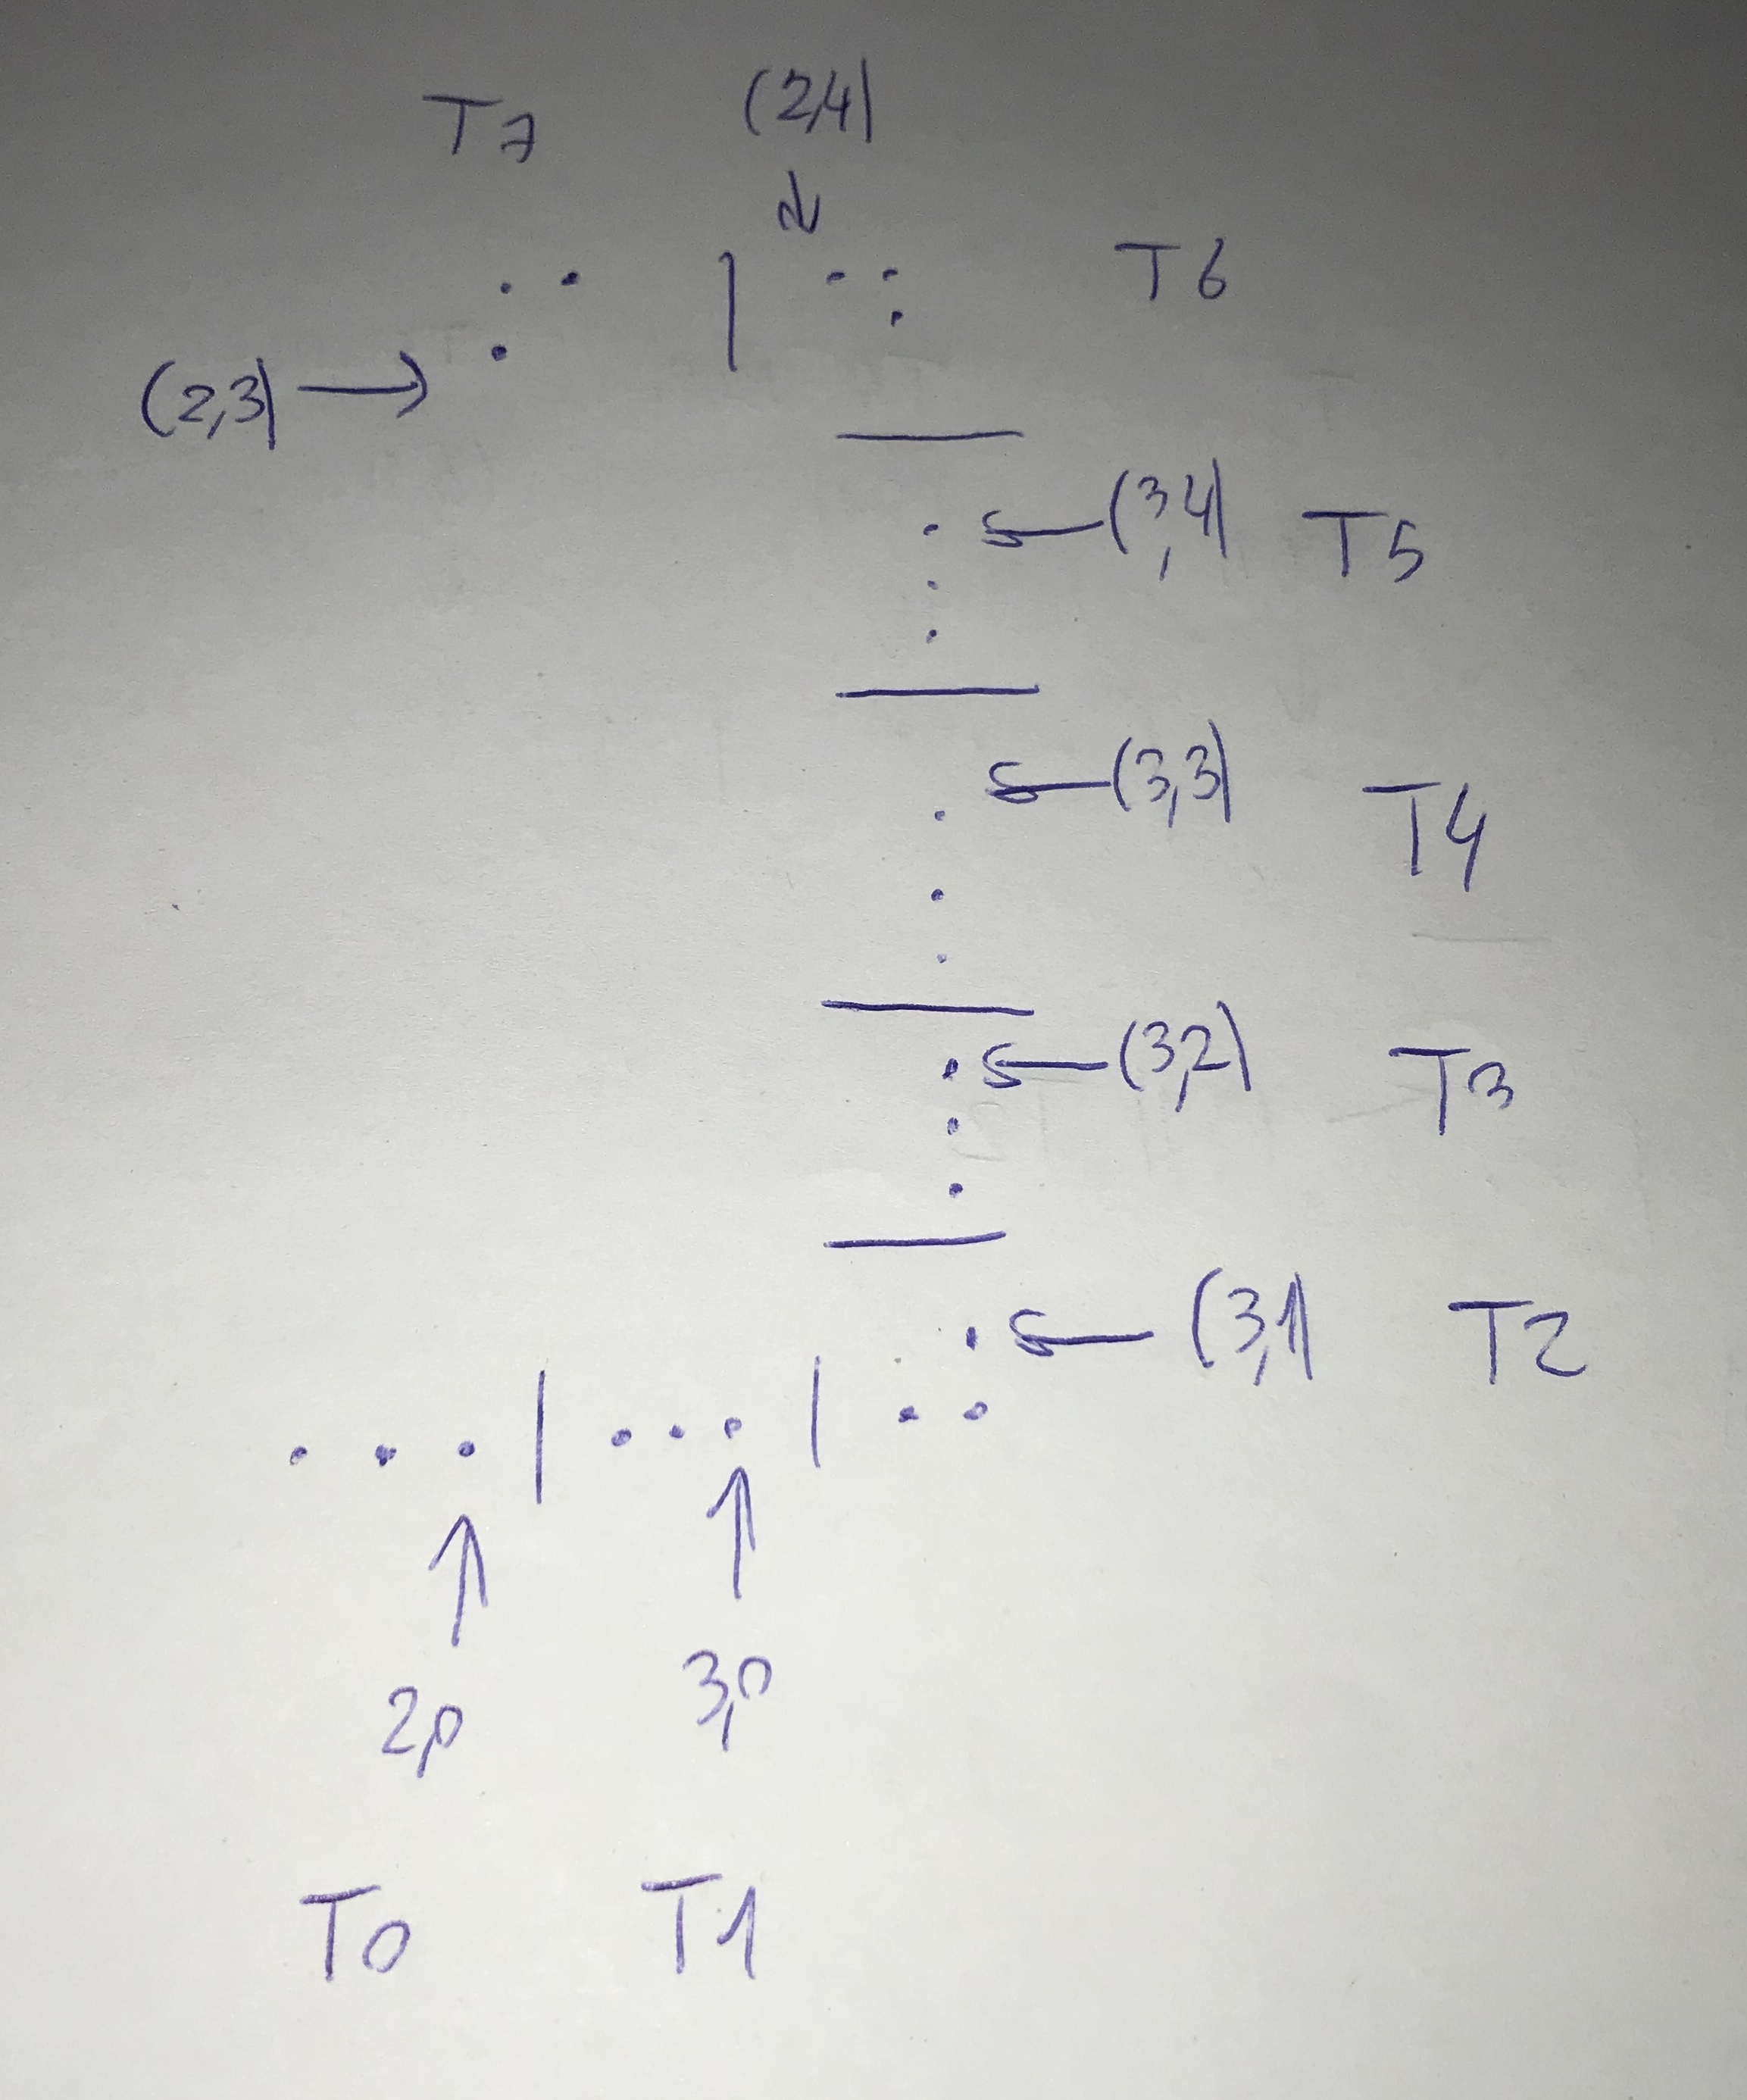 T7 (2,4)
T6
(2,3)
(3,4) T5
(3,3) T4
(3,2) T3
(3,1) T2
2,0 3,0
T0 T1